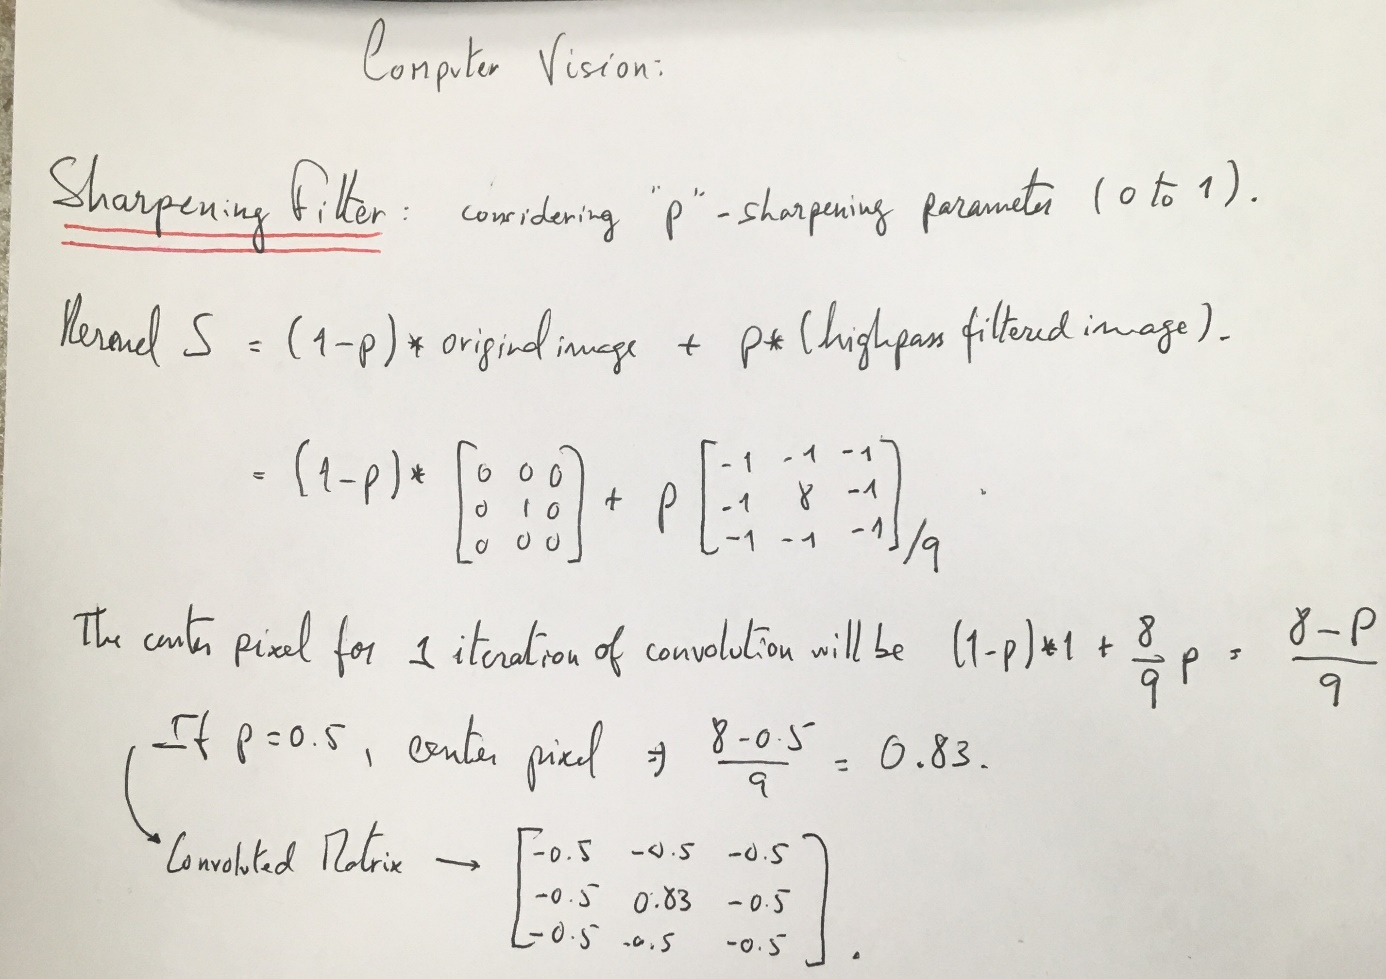 Computer Vision:
Sharpening Filter: considering "p" - sharpening parameter (0 to 1).
Kernel S = (1-p)* original image + p* (highpass filtered image).
= (1-p)* [0 0 0 + p [-1 -1 -1
0 1 0 -1 8 -1
0 0 0] -1 -1 -1]/9
The center pixel for 1 iteration of convolution will be (1-p)*1 + 8/9 p = 8-p/9
If p=0.5, center pixel ⇒ 8-0.5/9 = 0.83.
Convoluted Matrix → [-0.5 -0.5 -0.5
-0.5 0.83 -0.5
-0.5 -0.5 -0.5].